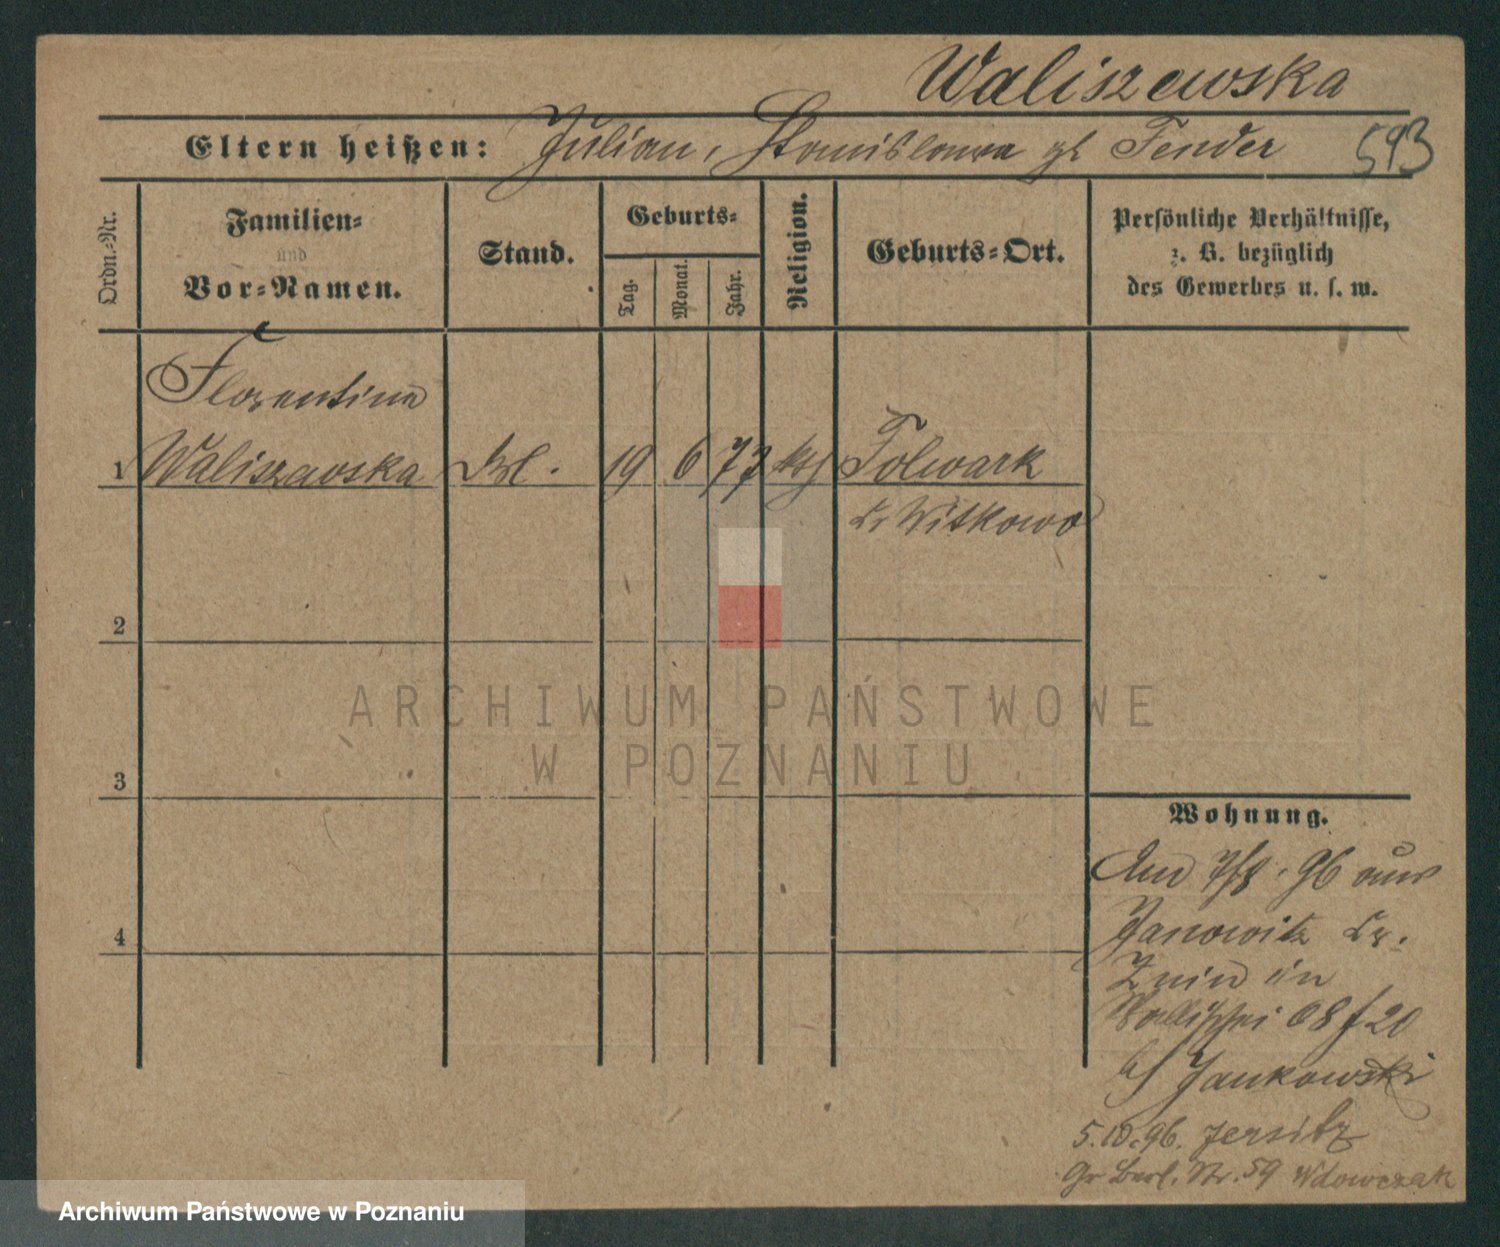 Waliszewska
Eltern heißen: Julian, Stanislawa gb Fender 593
Ordn.-Nr.
Familien-
und
Vor-Namen.
Stand.
Geburts-
Tag.
Monat.
Jahr.
Religion.
Geburts-Ort.
Persönliche Verhältnisse,
z. B. bezüglich
des Gewerbes u. s. w.
Florentine
1 Waliszewska Frl. 19 6 73 kth Folwark
Kr Witkowo
2
3
4
Wohnung.
Am 96 aus
Janowitz Kr.
Znin in
68 f 20
bf Jankowski
5.10.96. Jersitz
Gr Berl. Str. 59 Wdowczak
ARCHIWUM PAŃSTWOWE
W POZNANIU
Archiwum Państwowe w Poznaniu